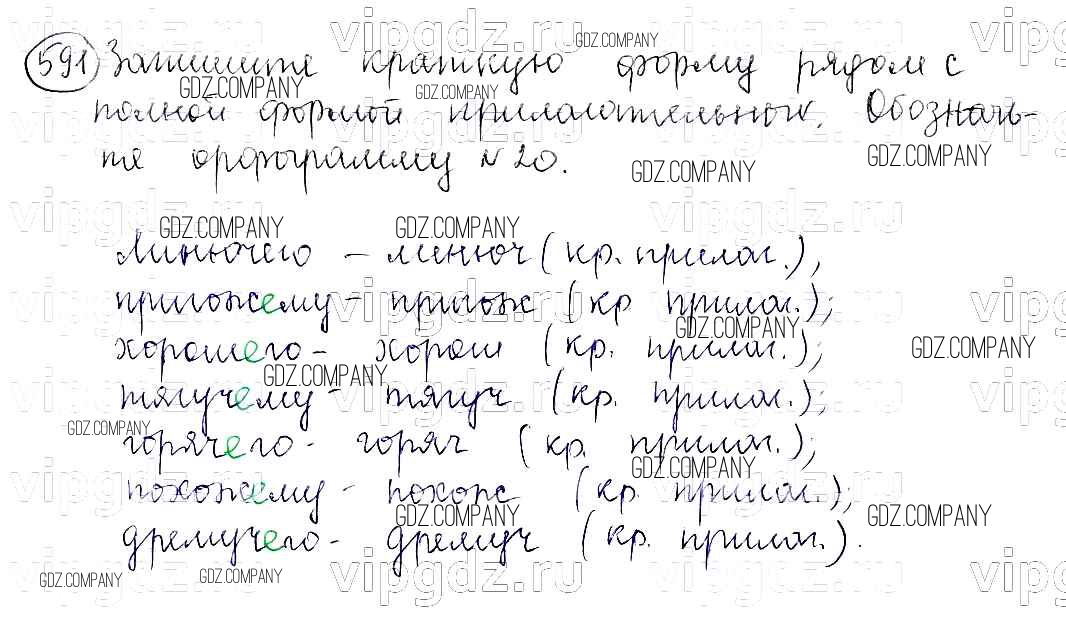 591 Запишите краткую форму рядом с
полной формой прилагательных. Обозначь-
те орфограмму №20.
Линючего - линюч (кр. прилаг.),
пригожему - пригож (кр. прилаг.);
хорошего - хорош (кр. прилаг.);
тягучему - тягуч (кр. прилаг.);
горячего - горяч (кр. прилаг.);
похожему - похож (кр. прилаг.);
дремучего - дремуч (кр. прилаг.).
vipgdz.ru
GDZ.COMPANY